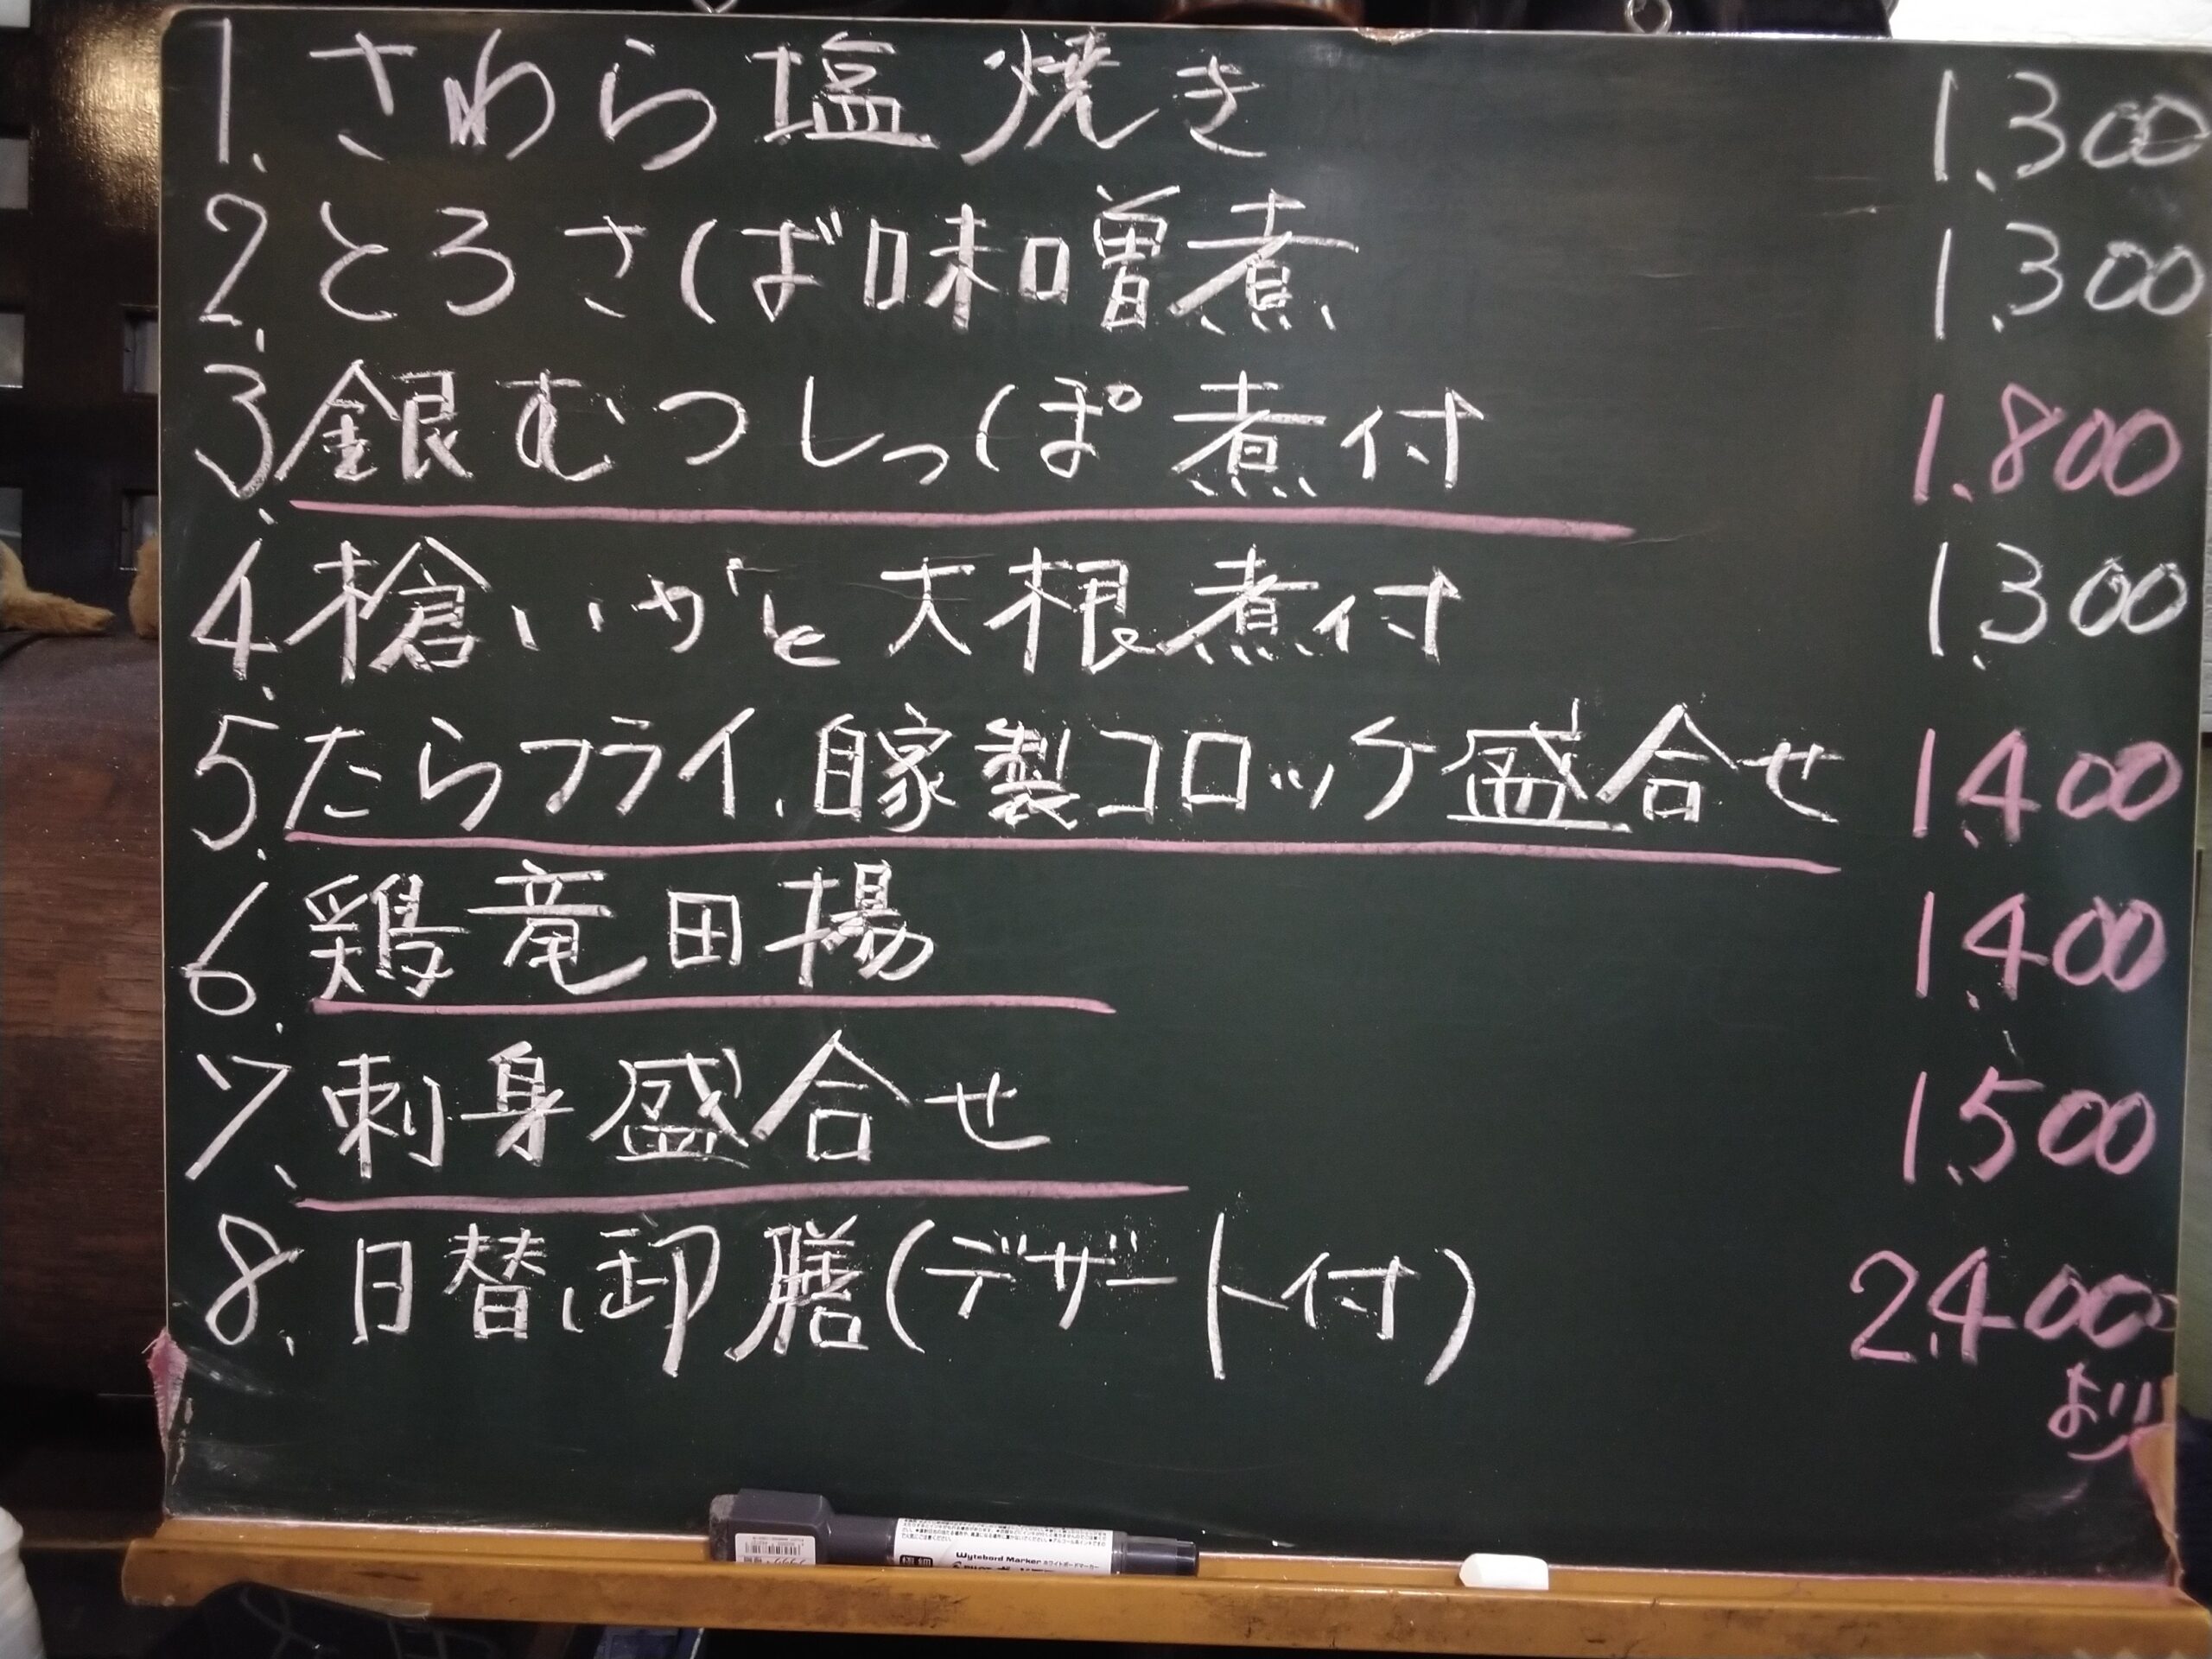 1. さわら塩焼き 1.300
2. とろさば味噌煮 1.300
3. 銀むつしっぽ煮付 1.800
4. 槍いかと大根煮付 1.300
5. たらフライ、自家製コロッケ盛合せ 1.400
6. 鶏竜田揚 1.400
7. 刺身盛合せ 1.500
8. 日替り御膳(デザート付) 2.400
より
Wytebord Marker ホワイトボードマーカー